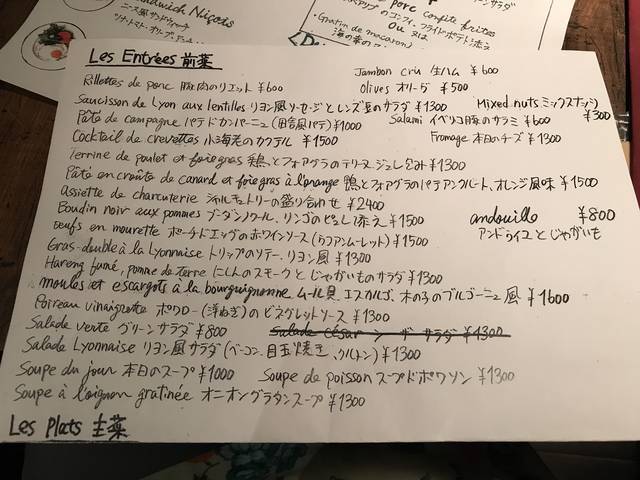 Sandwich Niçois
ニース風サンドウィッチ
porc confite frites
のコンフィ、フライドポテト添え
Ou 又は
Gratin de macaroni
Les Entrées 前菜
Jambon cru 生ハム ¥600
Rillettes de porc 豚肉のリエット ¥600
Olives オリーブ ¥500
Saucisson de Lyon aux lentilles リヨン風ソーセージとレンズ豆のサラダ ¥1300
Mixed nuts ミックスナッツ ¥300
Pâte de campagne パテドカンパーニュ (田舎風パテ) ¥1000
Salami イベリコ豚のサラミ ¥600
Cocktail de crevettes 小海老のカクテル ¥1500
Fromage 本日のチーズ ¥1300
Terrine de poulet et foie gras 鶏とフォアグラのテリーヌ ジュレ包み ¥1300
Pâte en croûte de canard et foie gras à l'orange 鴨とフォアグラのパテアンクルート、オレンジ風味 ¥1500
Assiette de charcuterie シャルキュトリーの盛り合わせ ¥2400
Boudin noir aux pommes ブーダンノワール、リンゴのピュレ添え ¥1500
andouille ¥800
アンドゥイユとじゃがいも
Oeufs en mourette ポーチドエッグのホワインソース (ウフアンムーレット) ¥1500
Gras-double à la Lyonnaise トリップのソテー、リヨン風 ¥1300
Hareng fumé, pomme de terre にしんのスモークとじゃがいものサラダ ¥1300
moules et escargots à la bourguignonne ムール貝、エスカルゴ、木の子のブルゴーニュ風 ¥1600
Poireau vinaigrette ポワロー (洋ねぎ) のビネグレットソース ¥1300
Salade verte グリーンサラダ ¥800
Salade César シーザーサラダ ¥1300
Salade Lyonnaise リヨン風サラダ (ベーコン、目玉焼き、クルトン) ¥1300
Soupe du jour 本日のスープ ¥1000
Soupe de poisson スープドポワソン ¥1300
Soupe à l'oignon gratinée オニオングラタンスープ ¥1300
Les Plats 主菜